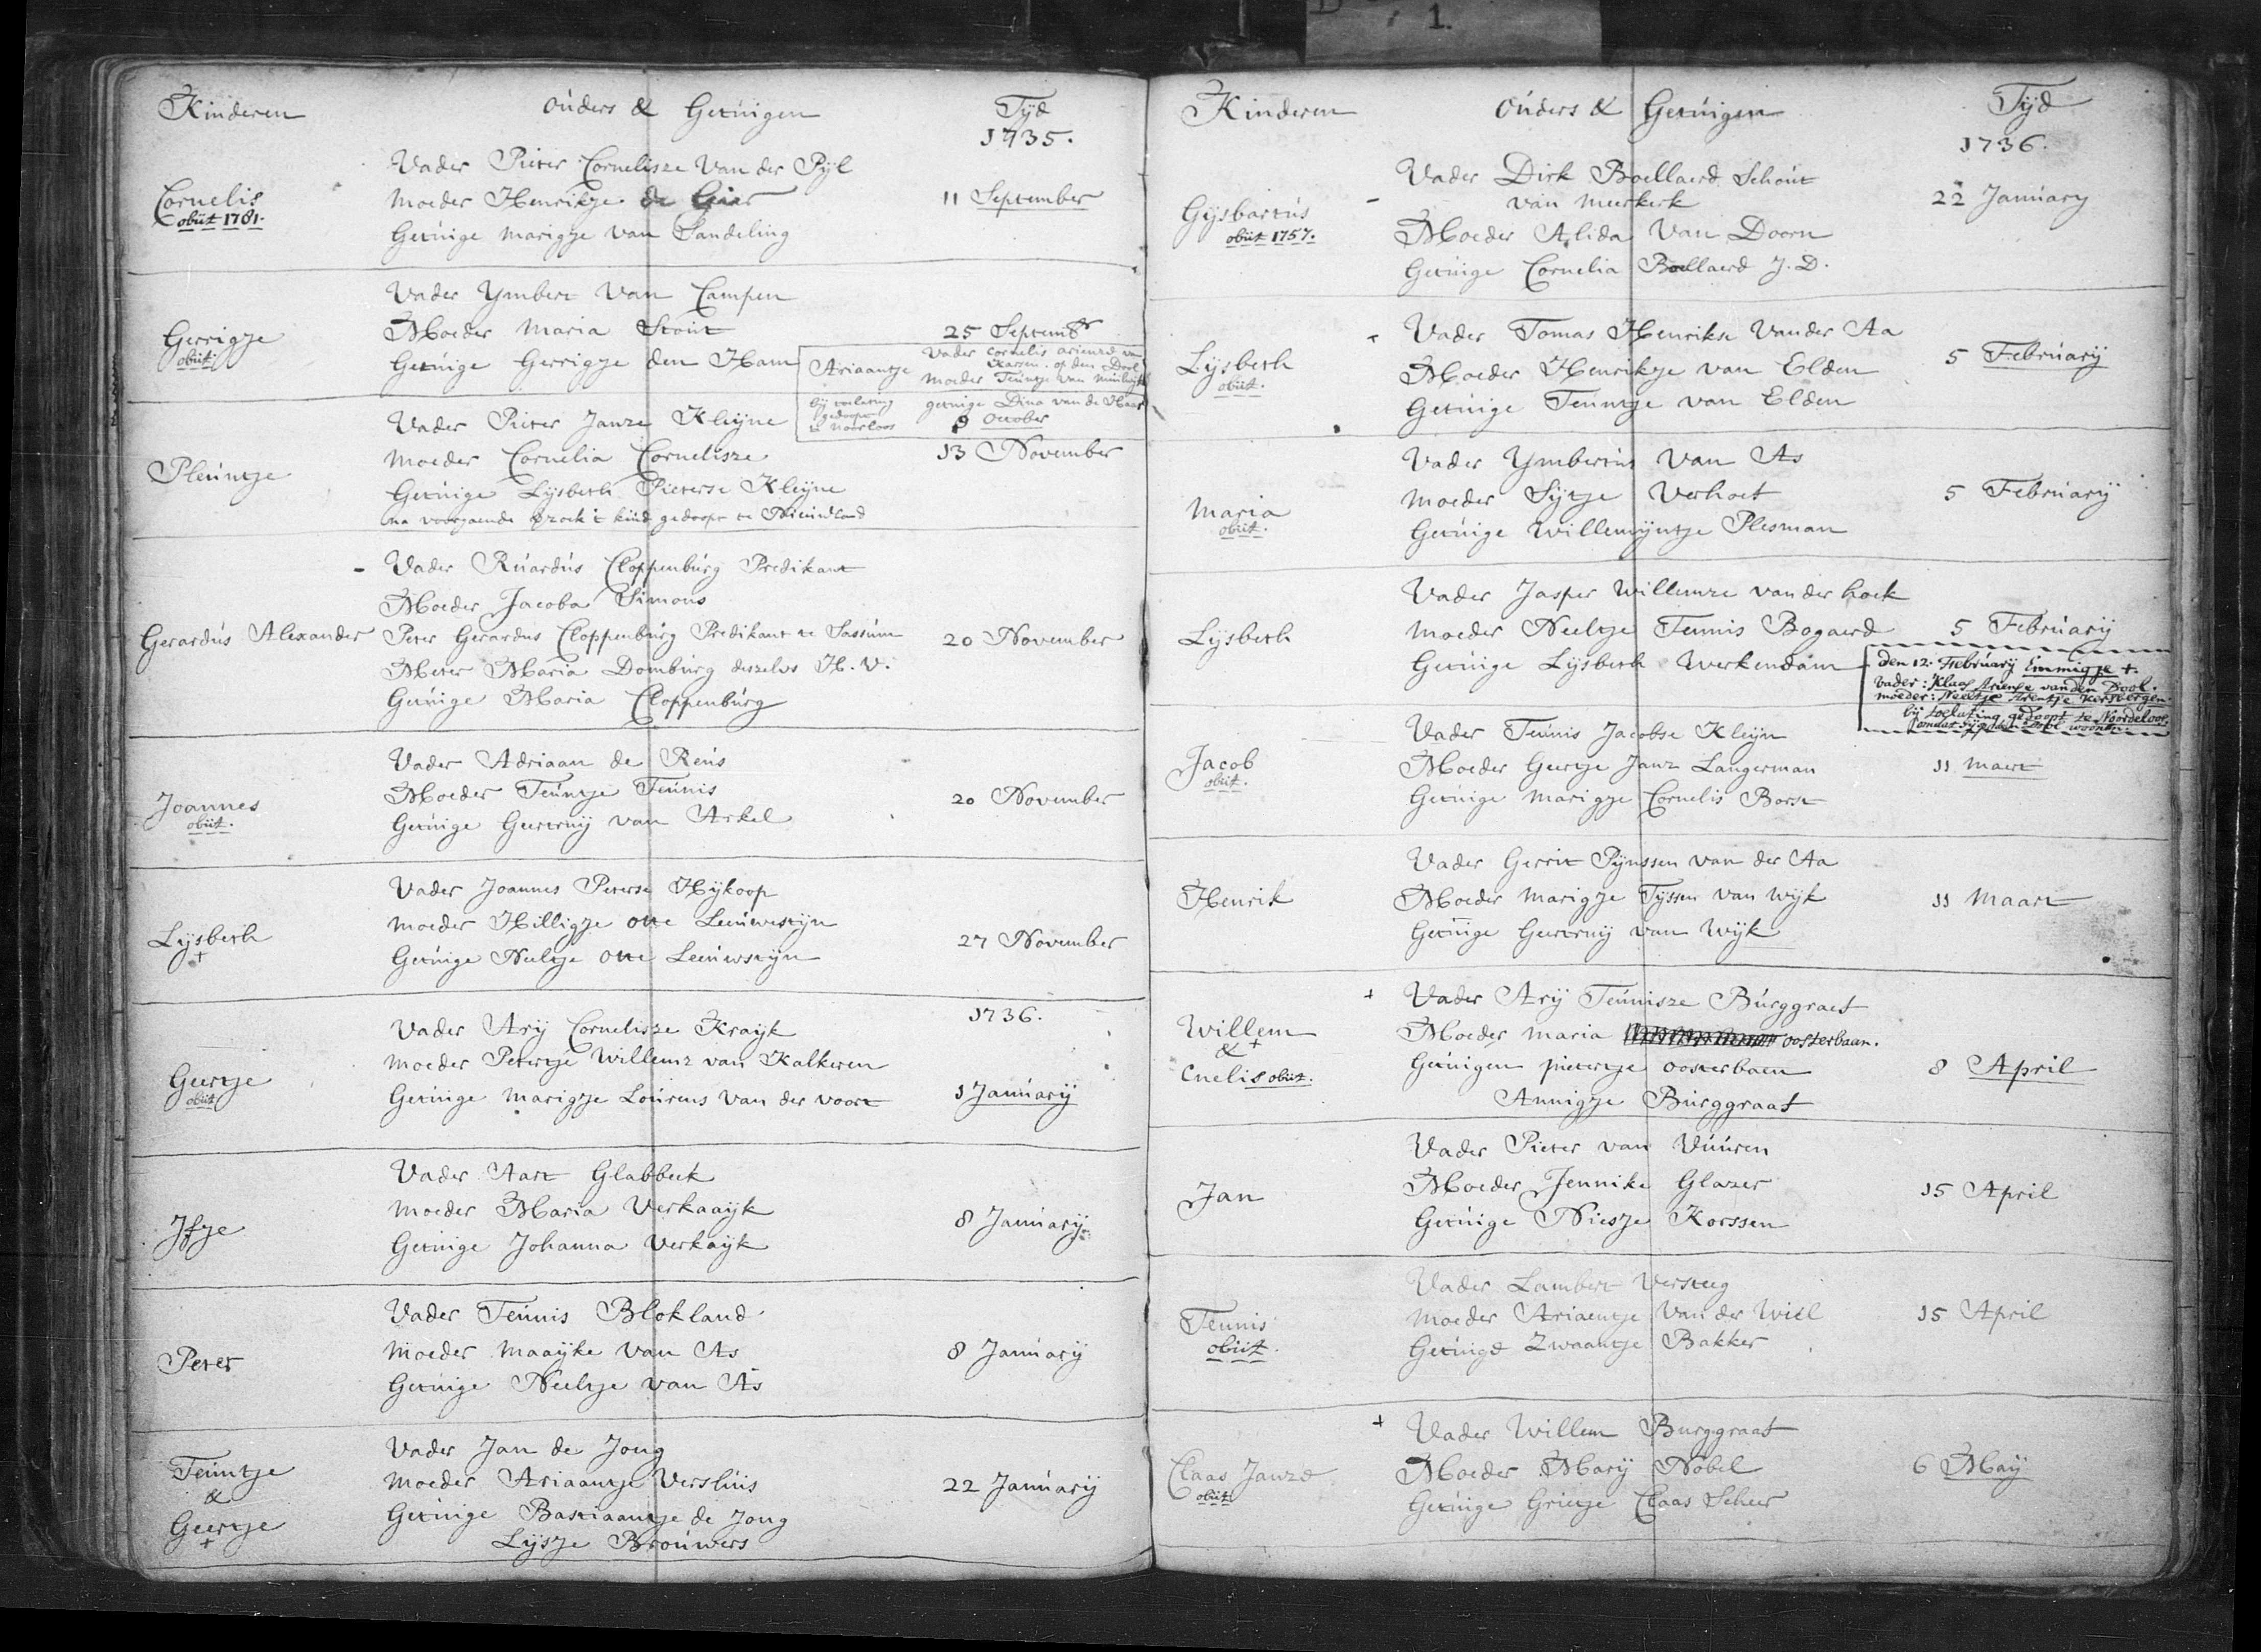 1.
Kinderen Ouders & Getuigen Tyd
1735.
Vader Pieter Cornelisze Van der Pyl
Cornelis Moeder Henrikje de Geer 11 September
obiit 1781.
Getuige Marigje van Sandeling
Vader Ymbert Van Campen
Gerrigje Moeder Maria Stout 25 Septembr
obiit.
Getuige Gerrigje den Ham
Ariaantje Vader Cornelis Arienze van
Karsen of den Dool
Moeder Teuntje van Muilwyk
bij toelating getuige Dina van de Haar
gedoopt 9 October
te Noorloos
Vader Pieter Janze Kleijne
Pleuntje Moeder Cornelia Cornelisze 13 November
Getuige Lysbeth Pieterse Kleyne
na voorgaende verzoek 't kind gedoopt te Nieuwland
Vader Ruardus Cloppenburg Predikant
Moeder Jacoba Simons
Gerardus Alexander Peter Gerardus Cloppenburg Predikant te Sassum 20 November
Meter Maria Domburg deszelvs H. V.
Getuige Maria Cloppenburg
Vader Adriaan de Reus
Joannes Moeder Teuntje Teunis 20 November
obiit.
Getuige Geertruij van Arkel
Vader Joannes Peterse Hijkoop
Lijsbeth Moeder Hilligje Otte Leeuwestijn 27 November
+
Getuige Neeltje Otte Leeuwstijn
1736.
Vader Arij Cornelisze Kraijk
Geertje Moeder Petertje Willemz van Kalkeren
obiit
Getuige Marigje Lourens van der Voort 1 Januarij
Vader Aart Glabbeek
Ifje Moeder Maria Verkaayk 8 Januarij
Getuige Johanna Verkaijk
Vader Teunis Blokland
Peter Moeder Maaijke Van As 8 Januarij
Getuige Neeltje van As
Vader Jan de Jong
Teuntje Moeder Ariaantje Versluis 22 Januarij
&
Geertje Getuige Bastiaantje de Jong
+
Lijsje Brouwers
Kinderen Ouders & Getuigen Tyd
1736.
Vader Dirk Boellaerd Schout
Gijsbartus van Meerkerk 22 January
obiit 1757.
Moeder Alida Van Doorn
Getuige Cornelia Boellaerd J. D.
Vader Tomas Henrikse Vander Aa
Lijsbeth Moeder Henrikje van Elden 5 February
obiit.
Getuige Teuntje van Elden
Vader Ymbertus Van As
Maria Moeder Sijtje Verhoef 5 February
obiit.
Getuige Willemijntje Plesman
Vader Jasper Willemze van der hoek
Lijsbeth Moeder Neeltje Teunis Bogaerd 5 February
Getuige Lijsbeth Werkendam
den 12. February Emmigje +.
vader: Klaas Ariense vanden Dool.
moeder: Neeltje Arentje Kersbergen.
bij toelating gedoopt te Noordeloos.
omdat zij op den Dool woonen.
Vader Teunis Jacobse Kleijn
Jacob Moeder Geertje Janz Langerman 11 Maert
obiit.
Getuige Marigje Cornelis Borst
Vader Gerrit Pijnssen van der Aa
Henrik Moeder Marigje Tyssen van Wyk 11 Maart
Getuige Geertruij van Wijk
+ Vader Arij Teunisze Burggraef
Willem + Moeder Maria oosterbaan.
&
Cnelis obiit. Getuigen pietertje oosterbaen 8 April
Annigje Burggraaf
Vader Pieter van Vuuren
Jan Moeder Jennike Glazer 15 April
Getuige Niesje Korssen
Vader Lambert Versteeg
Teunis Moeder Ariaentje Van der Wiel 15 April
obiit.
Getuige Zwaantje Bakker
+ Vader Willem Burggraaf
Claas Janze Moeder Marij Nobel 6 Maij
obiit
Getuige Grietje Claas Scheer